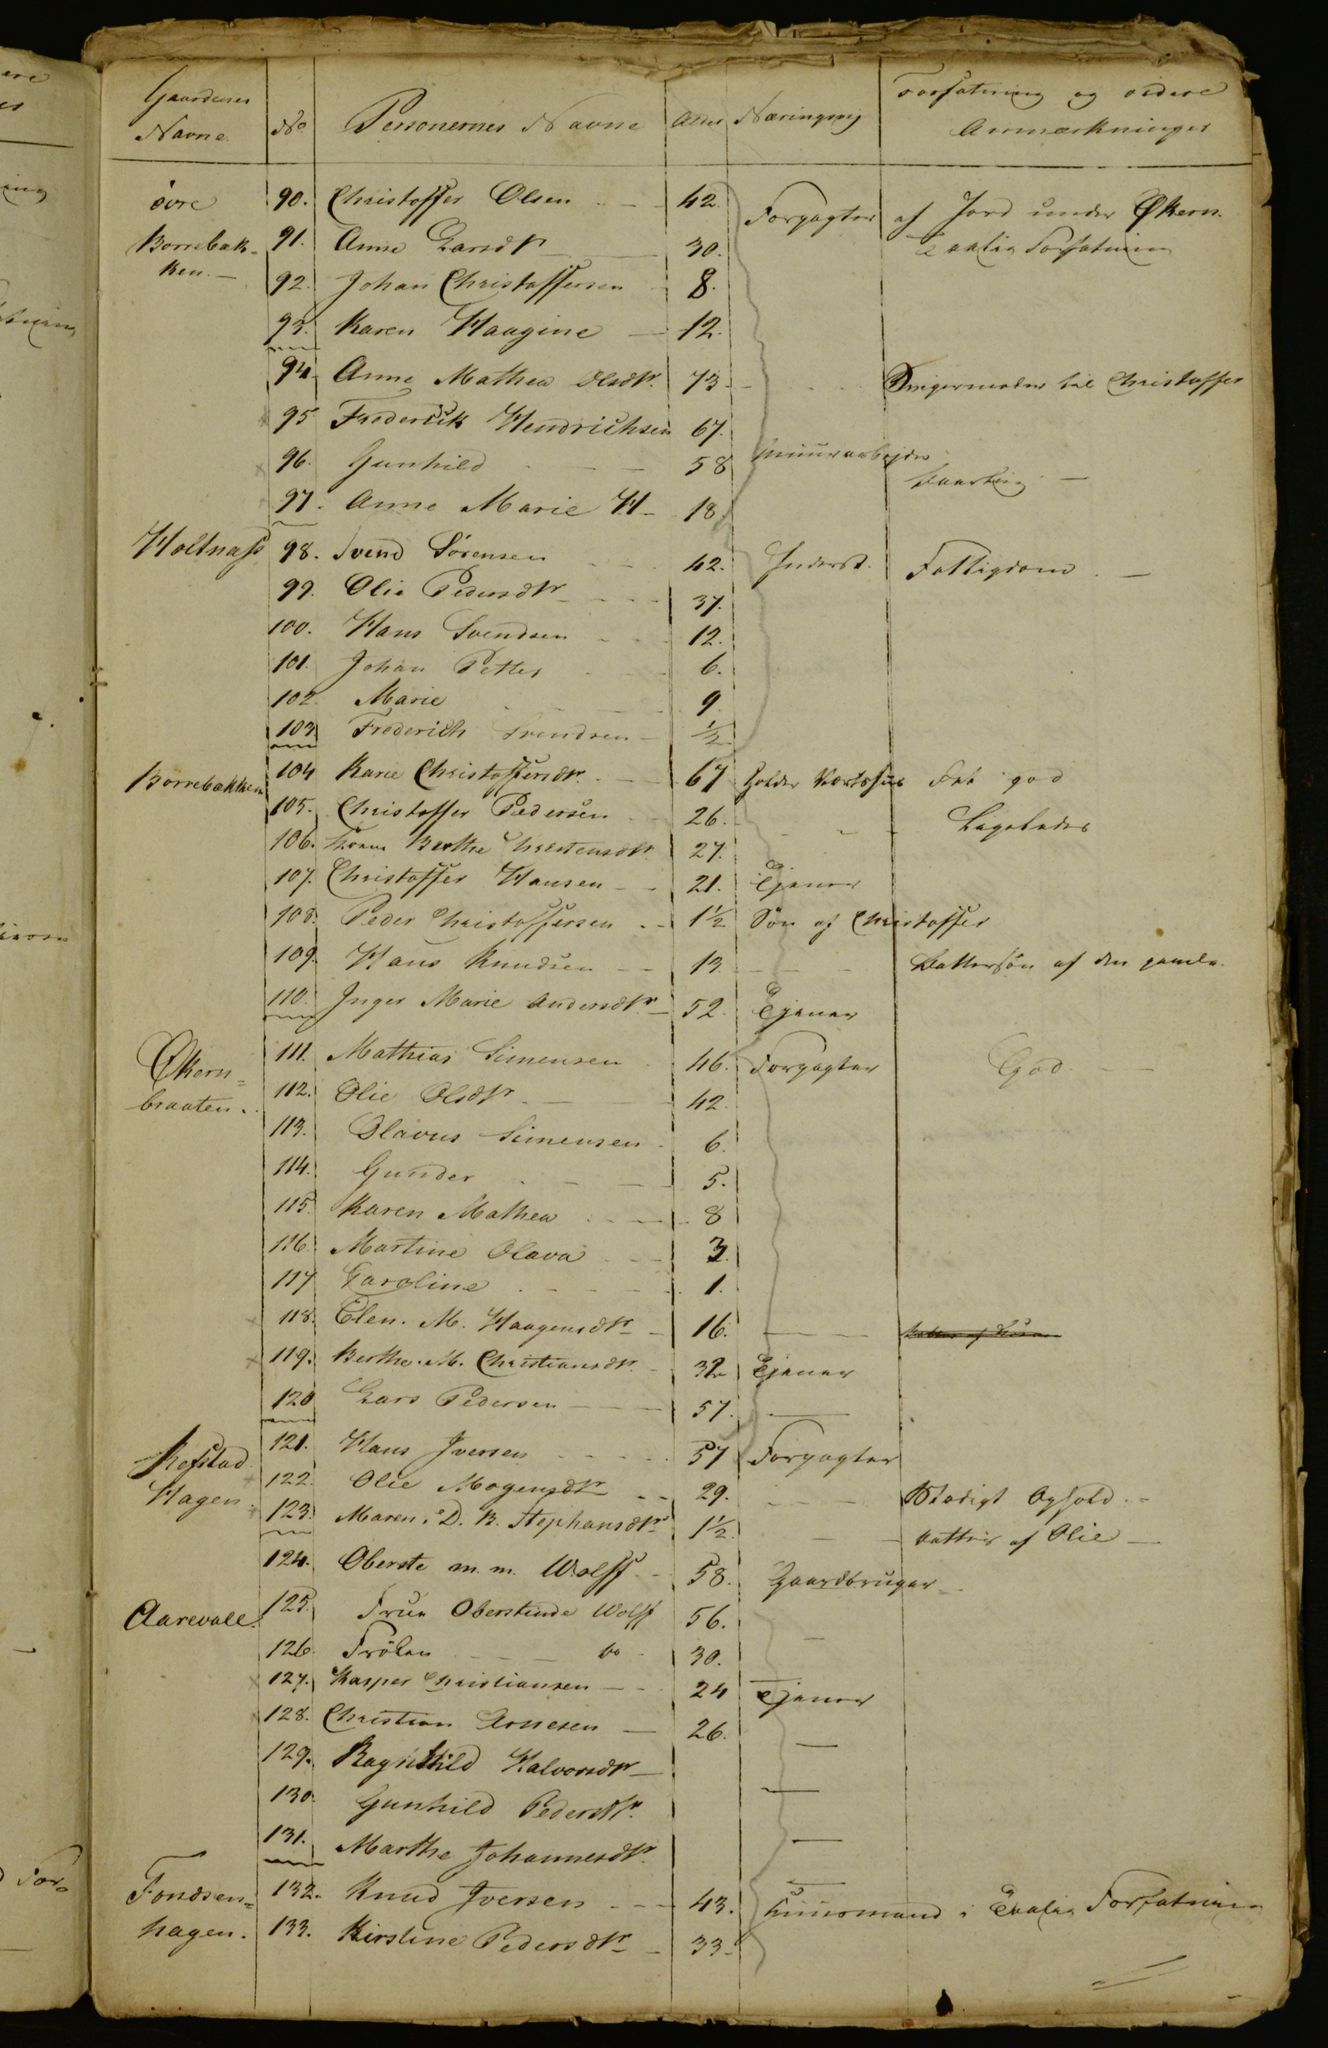 Gaardenes Navne No Personernes Navne Alder Næringsvej Forfatning og videre Anmærkninger
övre 90. Christoffer Olsen 42. Forpagter af Jord under Økern.
Borrebak- 91. Anne Larsdtr 30. Taalig Forfatning
ken. 92. Johan Christoffersen 8.
93. Karen Haagine 12.
94. Anne Mathea Olsdtr. 73 Svigermoder til Christoffer
95 Frederik Hendrichsen 67.
96. Gunhild 58 Muurarbejder Daarlig
97. Anne Marie H 18
Holtnass 98. Svend Sörensen 42. Inderst. Fattigdom
99. Olia Pedersdtr 37.
100. Hans Svendsen 12.
101. Johan Petter 6.
102. Marie 9
103. Frederich Svendsen ½
Borrebakken 104 Karie Christoffersdtr. 67 holder Vertshus Fat god
105. Christoffer Pedersen 26. Ligeledes
106. Berthe 27.
107. Christoffer Hansen 21. Tjener
108. Peder Christoffersen 1½ Sön af Christoffer
109. Hans Knudsen 13 Dattersön af den gamle.
110. Inger Marie Andersdtr. 52. Tjener
Økern= 111. Mathias Simensen 46. Forpagter God
braaten. 112. Olie Olsdtr 42
113. Olavus Simensen 6.
114. Gunder 5.
115. Karen Mathea 8
116. Martine Olava 3
117 Caroline 1.
118. Elen. M. Haagensdtr 16.
119. Berthe. M. Christiansdtr. 32 Tjener
120 Lars Pedersen 57.
Refstad 121. Hans Iversen 57 Forpagter
Hagen 122. Olie Mogensdtr 29. Stadigt Ophold
123. Maren. D. B. Stephansdtr 1½ Datter af Olie
124. Oberste m. m. Wolff 58. Gaardbruger
Aarevall 125. Frue Oberstinde Wolff 56.
126. Frölen do 30.
127. Kasper Christiansen 24 Tjener
128. Christian Arnesen 26.
129. Ragnhild Halvorsdtr
130. Gunhild Pedersdtr.
131. Marthe Johannesdtr.
Fondsen= 132. Knud Iversen 43. Huusmand i Taalig Forfatning
hagen. 133. Kirstine Pedersdtr 33